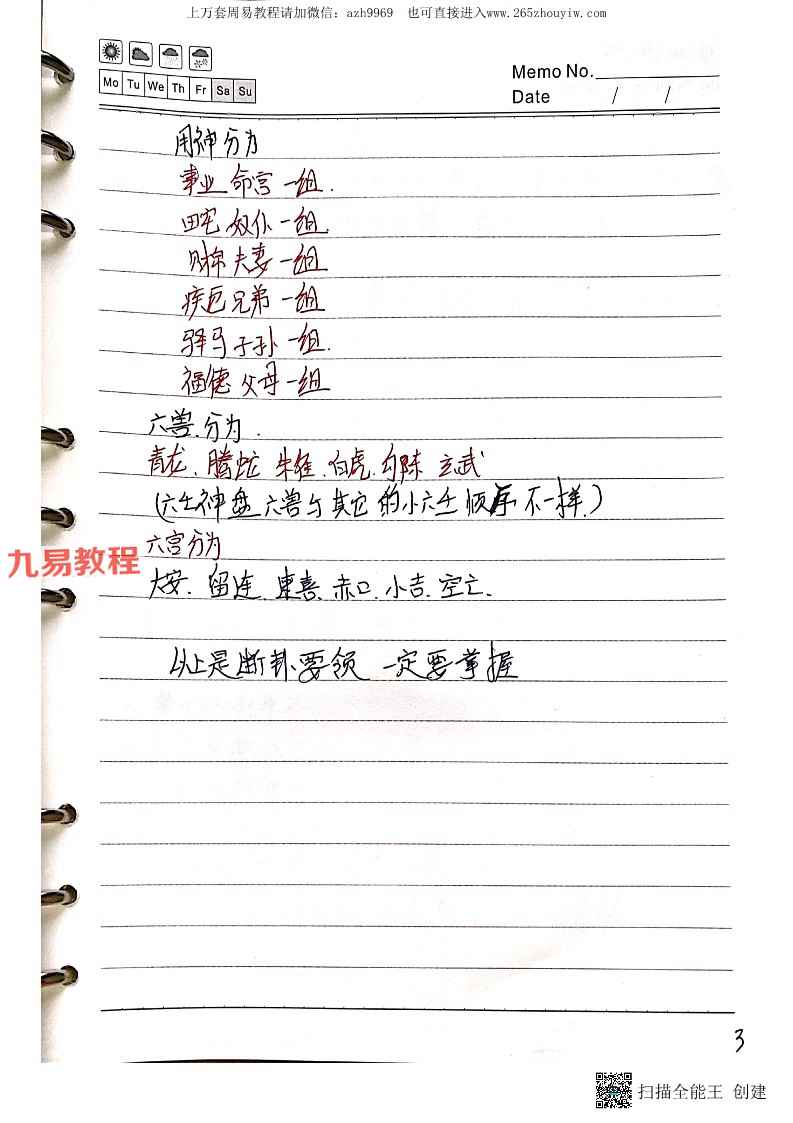 上万套周易教程请加微信：azh9969 也可直接进入www.265zhouyiw.com
Mo Tu We Th Fr Sa Su
Memo No.
Date / /
用神分为
事业 命宫 一组.
田宅 奴仆 一组.
财帛 夫妻 一组
疾厄 兄弟 一组
驿马 子孙 一组.
福德 父母 一组
六兽 分为.
青龙. 腾蛇 朱雀. 白虎. 勾陈 玄武
(六壬神盘六兽与其它的小六壬顺序不一样.)
九易教程
六宫分为
大安. 留连. 速喜. 赤口. 小吉. 空亡.
以上是断卦要领 一定要掌握
3
扫描全能王 创建